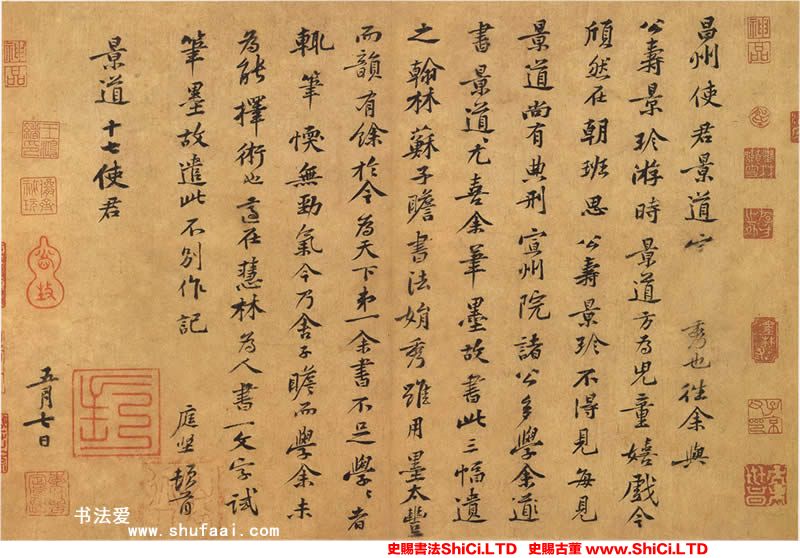 昌州使君景道宗秀也往余與
公壽景珍游時景道方為兒童嬉戲今
頎然在朝班思公壽景珍不得見每見
景道尚有典刑宣州院諸公多學余
書景道尤喜余筆墨故書此三幅遺
之翰林蘇子瞻書法娟秀雖用墨太豐
而韻有餘於今為天下第一余書不足學學者
輒筆愞無勁氣今乃舍子瞻而學余未
為能擇術也適在慧林為人書一文字試
筆墨故遣此不別作記
庭堅頓首
景道十七使君
五月七日
神品
神品
公
书法爱
www.shufaai.com
史賜書法ShiCi.LTD 史賜古董 www.ShiCi.LTD